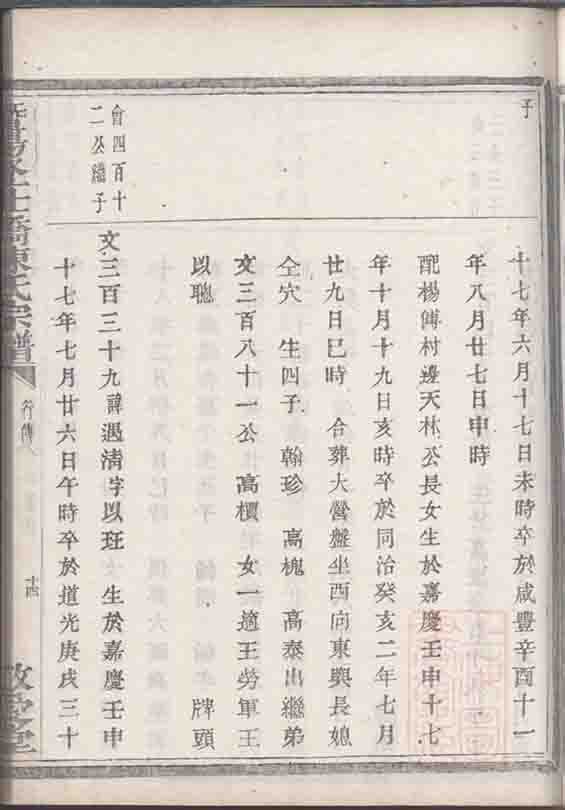 子
十七年六月十七日未時卒於咸豐辛酉十一
年八月廿七日申時
配楊傅村邊天林公長女生於嘉慶壬申十七
年十月十九日亥時卒於同治癸亥二年七月
廿九日巳時 合葬大營盤坐酉向東與長媳
仝穴 生四子 翰珍 高槐 高泰出繼弟
文三百八十一公 高檟 女一適王勞軍王
以聰 牌頭
會四百十
二公繼子
文三百三十九諱遇清字以班 生於嘉慶壬申
十七年七月廿六日午時卒於道光庚戌三十
橋陳氏宗譜
行傳
十四